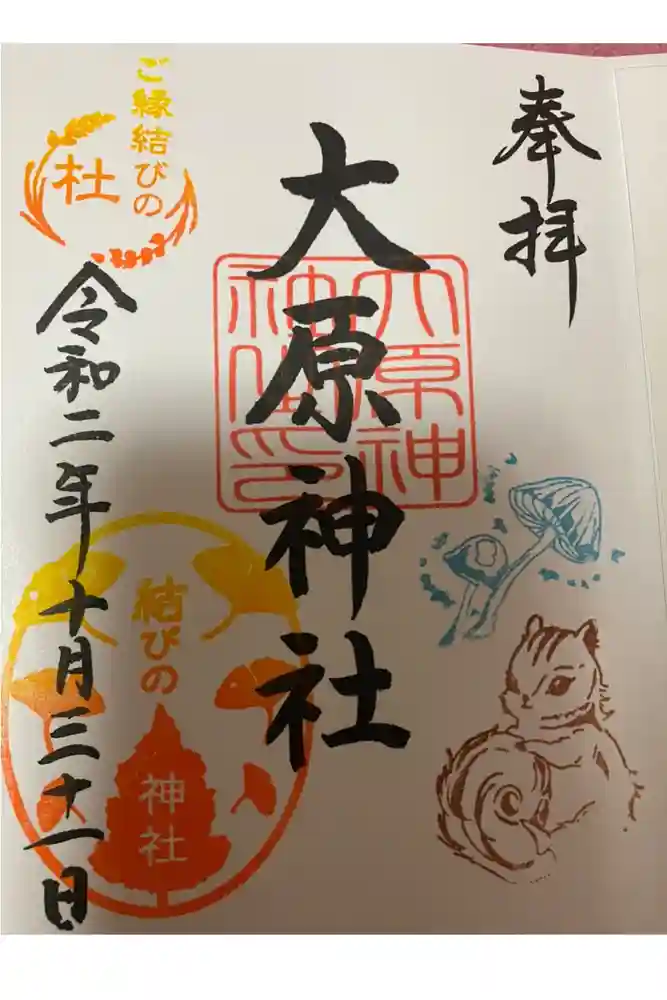 奉拝
大原神社
大原神
社参拝印
ご縁結びの
杜
令和二年十月三十一日
結びの
神社